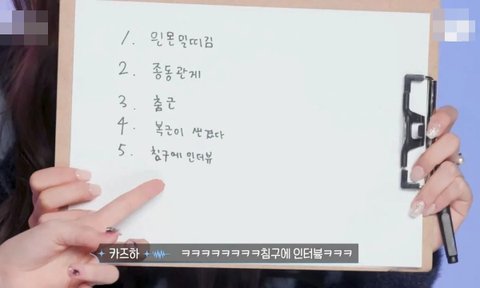 1. 읜몬밀띠김
2. 종동관게
3. 춤근
4. 복근이 썬겼다
5. 침구에 인더뷰
카즈하 ㅋㅋㅋㅋㅋㅋㅋㅋ침구에 인터뷰ㅋㅋㅋ